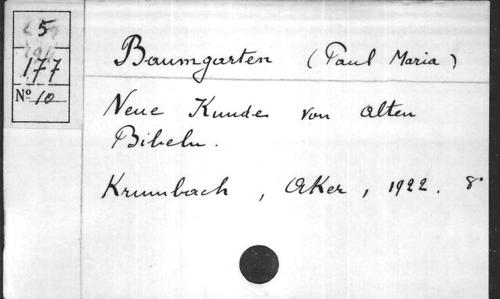 5
177
Nº 10
Baumgarten (Paul Maria)
Neue Kunde von alten
Bibeln.
Krumbach, Aker, 1922. 8º